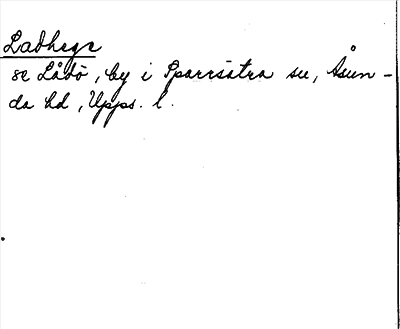 Ladhegr
se Lådö, by i Sparrsätra sn, Åsun-
da hd, Upps. l.